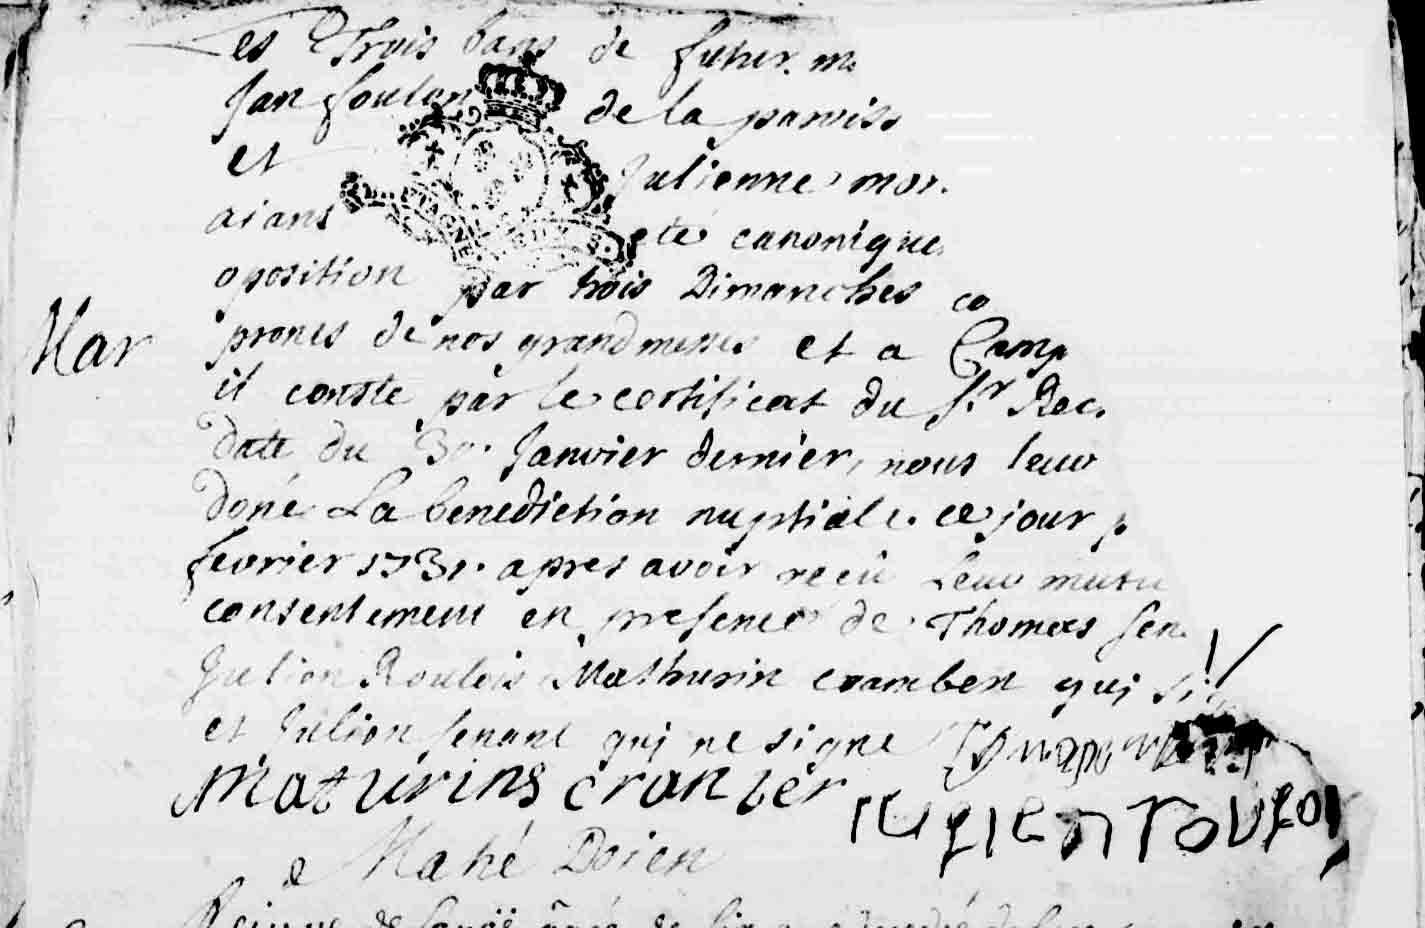 es Trois bans de futur m
Jan foulon de la paroiss
et Julienne mor
aians eté canonique
oposition par trois Dimanches co
Mar
prones de nos grand messes et a Camp
il conste par le certificat du Sr. Rec
date du 30. Janvier dernier, nous leur
doné La benediction nuptiale. ce jour p
fevrier 1731. apres avoir recû Leur mutu
consentement en presence de Thomas Sen
Julien Roulois Mathurin crambert qui si
et Julien Senant qui ne signe
maturins cranber
julien roulo
Mahé Doien